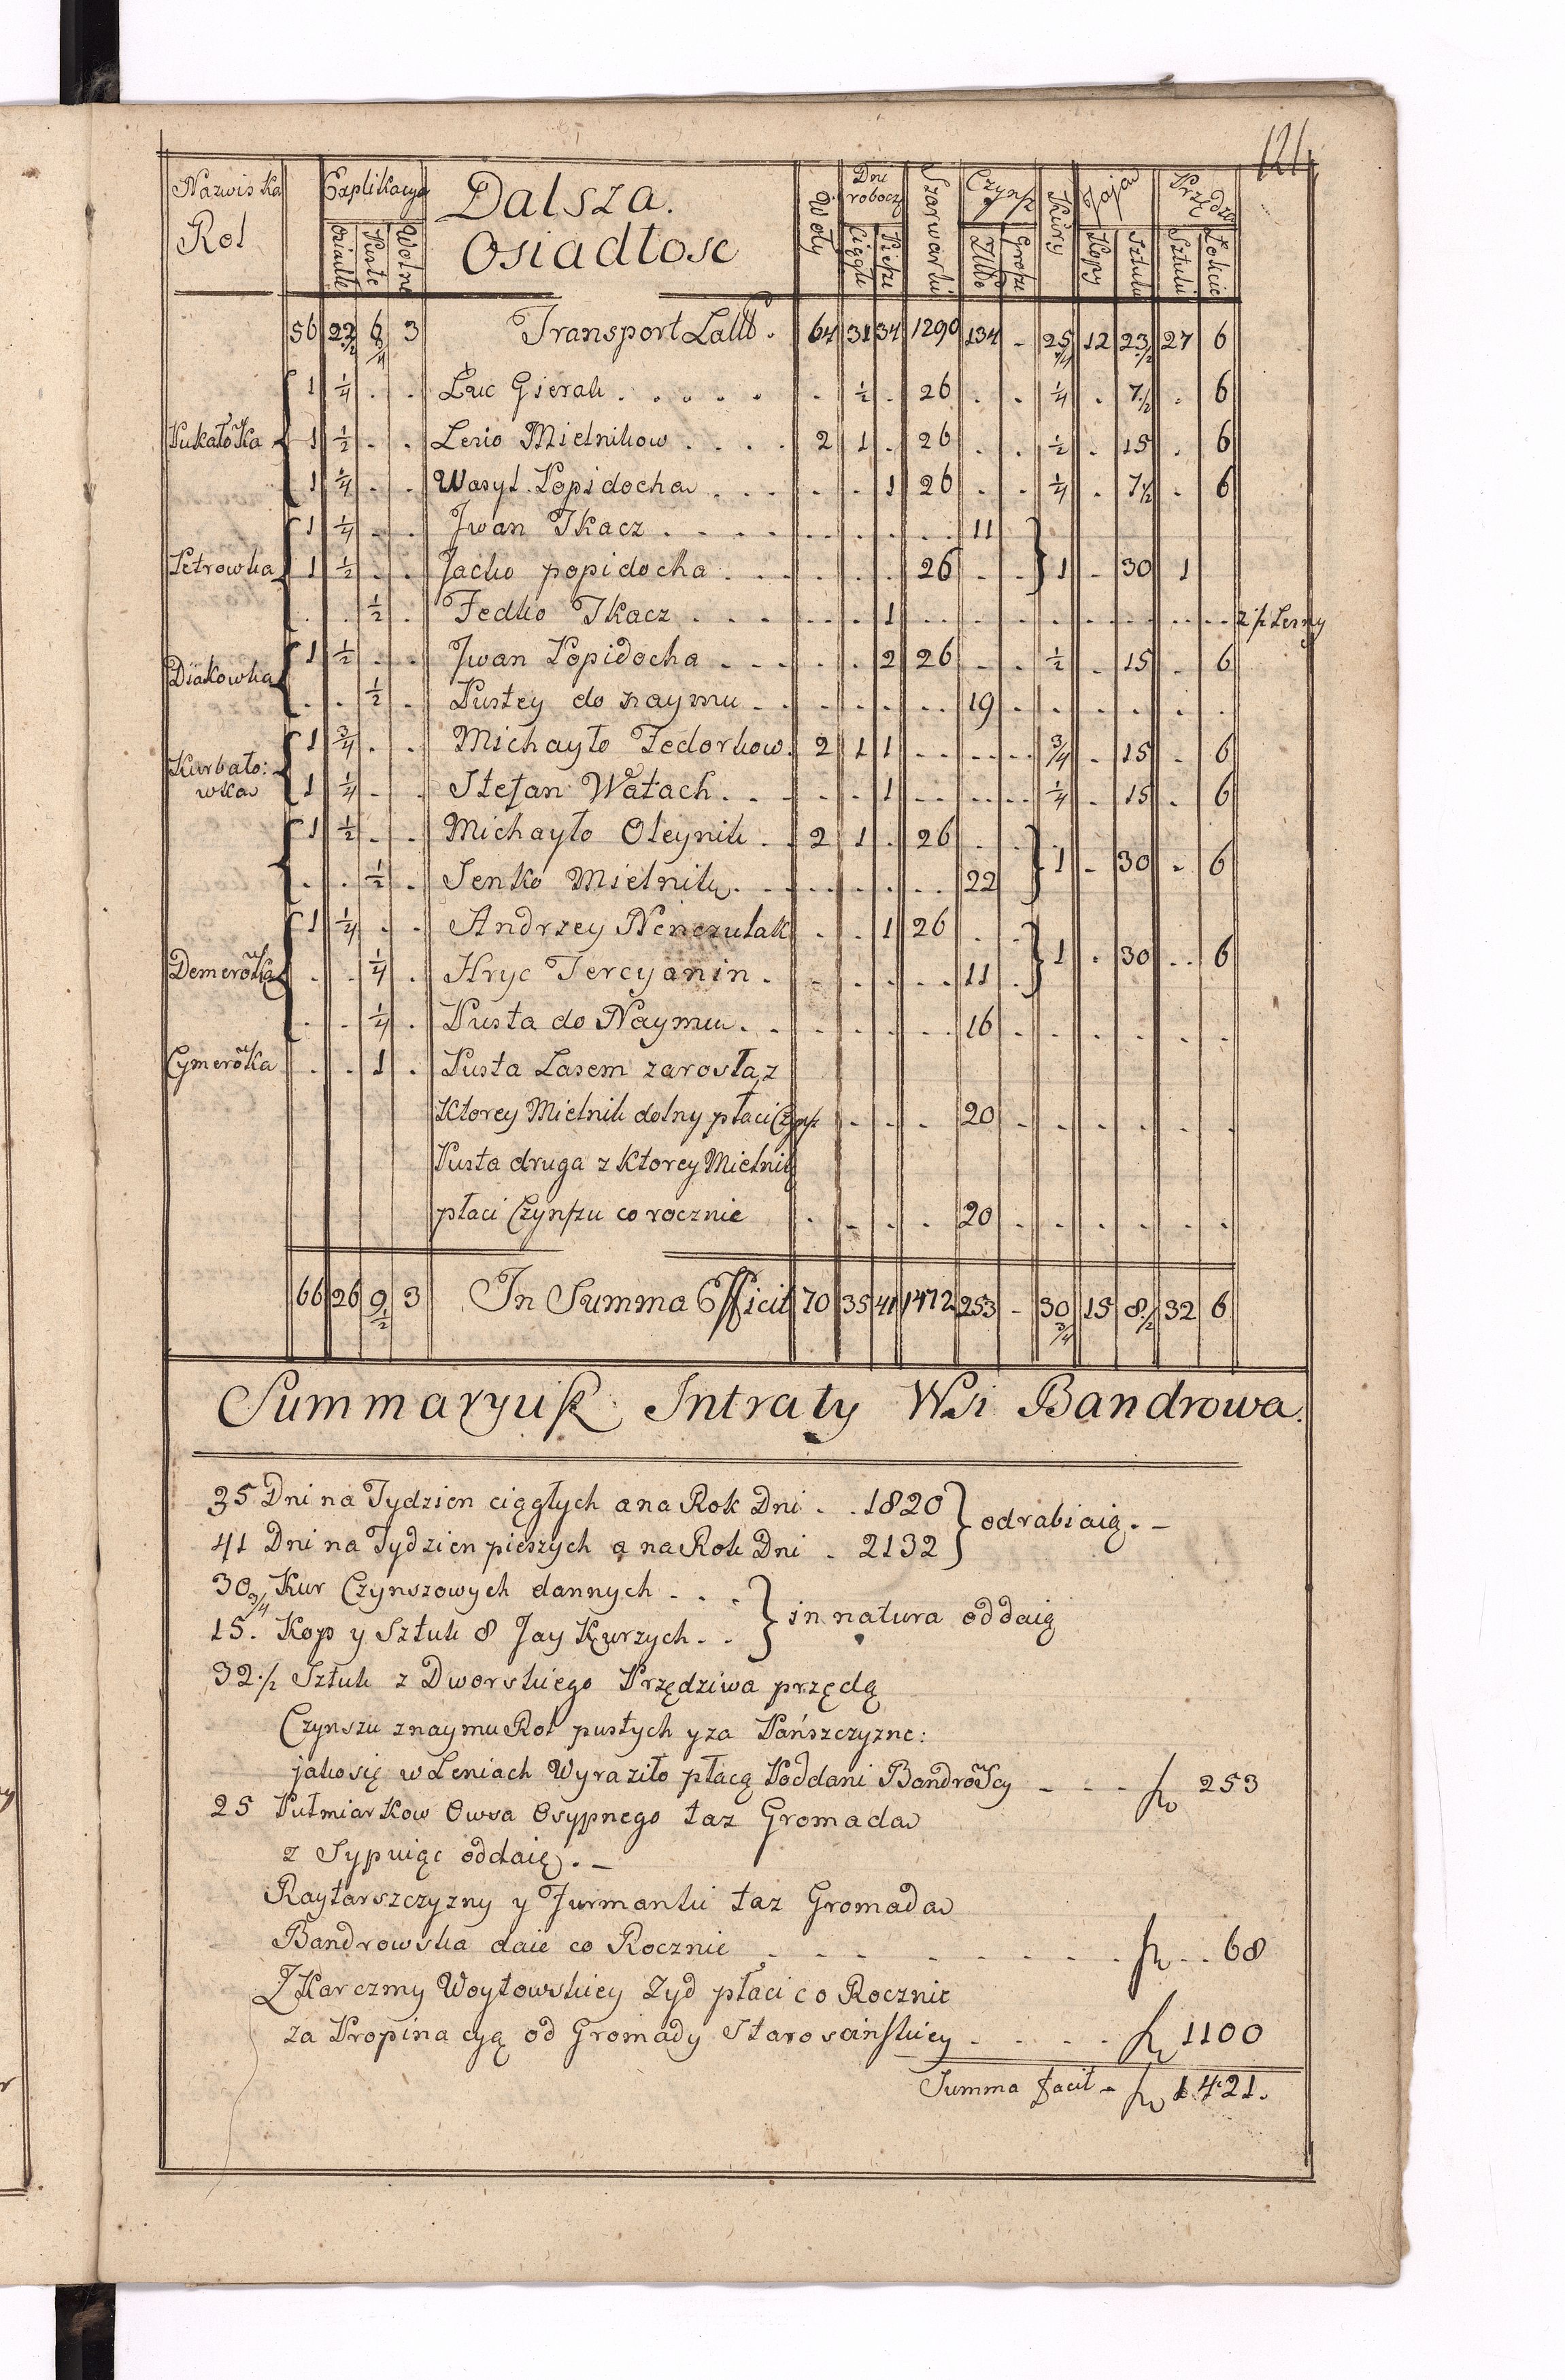 121
Nazwiska Rol | Explikacya | Dalsza. Osiadłosc | Woły | Dni roboczé | Szarwarki | Czynsz | Kury | Jaja | Przędza
osiadłe | Puste | Wolne | Ciągłe | Piesze | Złłb | Grosze | Kopy | Sztuki | Sztuki | Łokcie
56 | 22 1/2 | 6 3/4 | 3 | Transport Lattb. | 64 | 31 | 34 | 1290 | 134 | - | 25 3/4 | 12 | 23 1/2 | 27 | 6
1 | 1/4 | . | . | Luc Gierak . . . . . | . | 1/2 | . | 26 | . | . | 1/4 | . | 7 1/2 | . | 6
Pukałoẃka | 1 | 1/2 | . | . | Lesio Mielnikow . . . . | 2 | 1 | . | 26 | . | . | 1/2 | . | 15 | . | 6
1 | 1/4 | . | . | Wasyl Popidocha . . . | . | . | 1 | 26 | . | . | 1/4 | . | 7 1/2 | . | 6
1 | 1/4 | . | . | Jwan Tkacz . . . . | . | . | . | . | 11
Petrowka | 1 | 1/2 | . | . | Jacko popidocha . . . | . | . | . | 26 | . | . | 1 | - | 30 | 1
. | . | 1/2 | . | Fedko Tkacz . . . . | . | . | 1 | . | . | . | . | . | . | . | . | z'p Lesny
Diakowka | 1 | 1/2 | . | . | Jwan Popidocha . . . | . | . | 2 | 26 | . | . | 1/2 | . | 15 | . | 6
. | . | 1/2 | . | Pustey do naymu . . | . | . | . | . | 19 | . | . | . | . | . | .
Karbato: | 1 | 3/4 | . | . | Michayło Fedorkow. | 2 | 1 | 1 | . | . | . | 3/4 | . | 15 | . | 6
wka | 1 | 1/4 | . | . | Stefan Watach . . . | . | . | 1 | . | . | . | 1/4 | . | 15 | . | 6
1 | 1/2 | . | . | Michayło Oleynik . | 2 | 1 | . | 26 | . | . | 1 | - | 30 | . | 6
. | . | 1/2 | . | Senko Mielnik. . . | . | . | . | . | 22
1 | 1/4 | . | . | Andrzey Nenczulak | . | . | 1 | 26 | . | . | 1 | . | 30 | . | 6
Demeroẃka | . | . | 1/4 | . | Hryc Tercyanin . | . | . | . | . | 11 | .
. | . | 1/4 | . | Pusta do Naymu. . . | . | . | . | . | 16 | . | . | . | . | . | .
Cymeroẃka | . | . | 1 | . | Pusta Lasem zarosła, z
Ktorey Mielnik dolny płaci Czynsz | . | . | . | 20 | . | . | . | . | . | .
Pusta druga z Ktorey Mielnik
płaci Czynszu co rocznie | . | . | . | . | 20 | . | . | . | . | . | .
66 | 26 | 9 1/2 | 3 | In Summa Efficit | 70 | 35 | 41 | 1472 | 253 | - | 30 3/4 | 15 | 8 1/2 | 32 | 6
Summaryusz Intraty Wsi Bandrowa.
35 Dni na Tydzien ciągłych a na Rok Dni . . 1820
41 Dni na Tydzien pieszych a na Rok Dni . 2132 } odrabiaią. -
30 3/4 Kur Czynszowych dannych . . .
15. Kop y Sztuk 8 Jay Kurzych . . } in natura oddaią
32 1/2 Sztuk z Dworskiego Przędziwa przędą
Czynszu z naymu Rol pustych y za Pańszczyznę:
jako się w Leniach Wyraziło płacą Poddani Bandrowscy - - - fl 253
25 Pułmiarkow Owsa Osypnego taz Gromada
z Sypuiąc oddaię. -
Raytarszczyzny y Jurmanku taz Gromada
Bandrowska daie co Rocznie . . . . . . . fl . . 68
Z Karczmy Woytowskiey Zyd płaci co Rocznie
za Propinacyą od Gromady Staroscinskiey . . . . fl 1100
Summa facit - fl 1421.